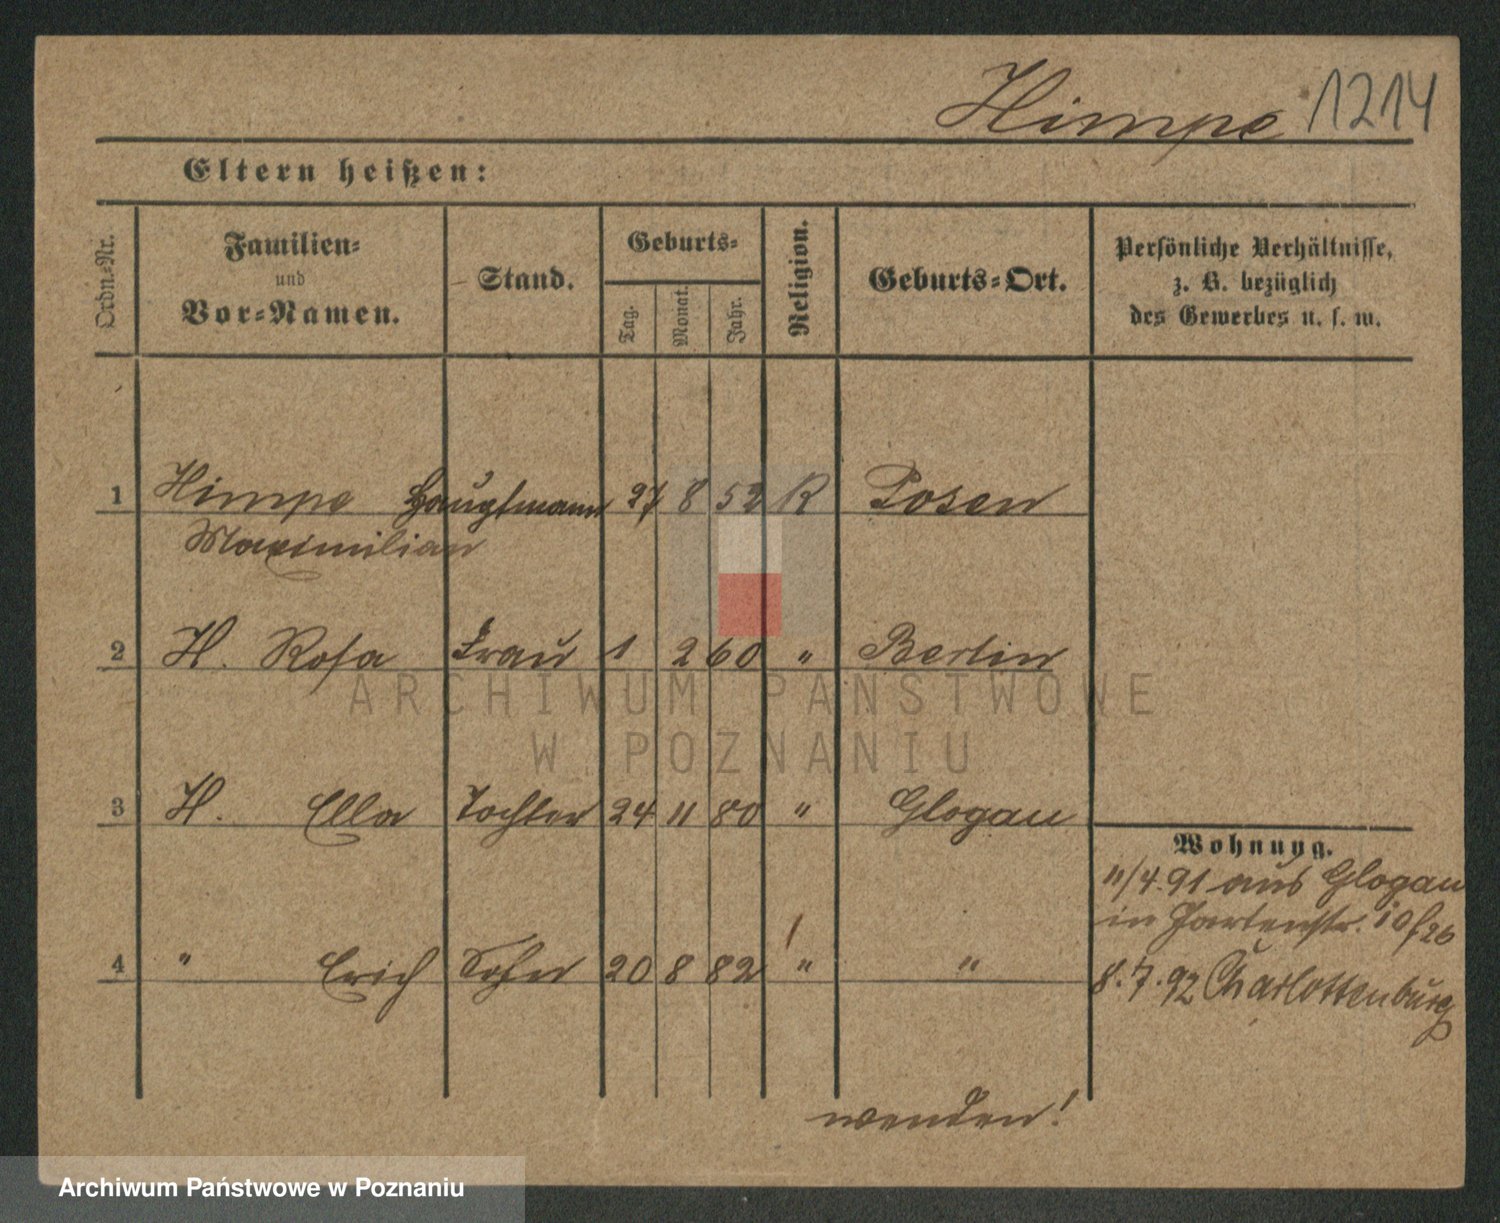 Himpe 1214
Eltern heißen:
Ordn.-Nr.
Familien-
und
Vor-Namen.
Stand.
Geburts-
Tag.
Monat.
Jahr.
Religion.
Geburts-Ort.
Persönliche Verhältnisse,
z. B. bezüglich
des Gewerbes u. s. w.
1 Himpe Hauptmann 27 8 52 R Posen
Maximilian
2 H. Rosa Frau 1 2 60 " Berlin
ARCHIWUM PAŃSTWOWE
W POZNANIU
3 H. Ella Tochter 24 11 80 " Glogau
Wohnung.
11/4.91 aus Glogau
in Gartenstr. 10/26
4 " Erich Sohn 20 8 82 " "
8.7.92 Charlottenburg
wenden!
Archiwum Państwowe w Poznaniu